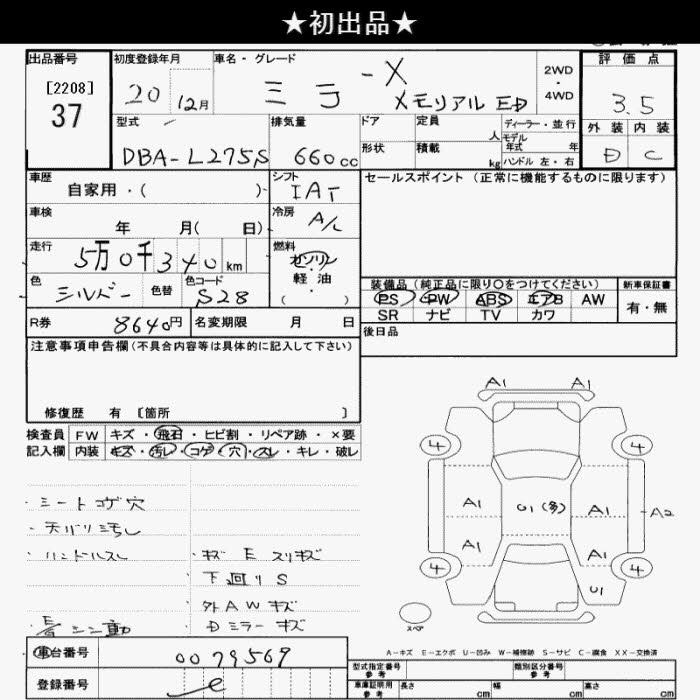 ★初出品★
出品番号
[2208]
37
初度登録年月
20 12月
車名・グレード
ミラ -X
メモリアル ED
2WD
・
4WD
評価点
3.5
外装 内装
D C
型式
DBA-L275S
排気量
660cc
ドア
形状
定員
人
積載
kg
ディーラー・並行
モデル
年式 年
ハンドル 左・右
車歴
自家用・( )
シフト
IAT
セールスポイント (正常に機能するものに限ります)
車検
年 月( 日)
冷房
A/C
走行
5万0千340km
燃料
ガソリン
・
軽油
( )
色
シルバー
色替
色コード
S28
装備品 (純正品に限り〇をつけてください)
PS PW ABS エアB AW
SR ナビ TV カワ
新車保証書
有・無
R券 8640円
名変期限 月 日
後日品
注意事項申告欄 (不具合内容等は具体的に記入して下さい)
修復歴 有 [箇所 ]
検査員
記入欄
FW キズ・飛石・ヒビ割・リペア跡・×要
内装 キズ・汚レ・コゲ・穴・スレ・キレ・破レ
・シートコゲ穴
・天バリ汚レ
・ハンドルスレ
・キズ E スリキズ
下回リ S
外AWキズ
Dミラーキズ
A1 A1
4 4
A1 U1(多) A1 A2
A1 A1
4 4
U1
スペア
A-キズ E-エクボ U-凹み W-補修跡 S-サビ C-腐食 XX-交換済
車台番号
0079569
登録番号
型式指定番号
参考
類別区分番号
参考
車庫証明用
参考
長さ cm
幅 cm
高さ cm